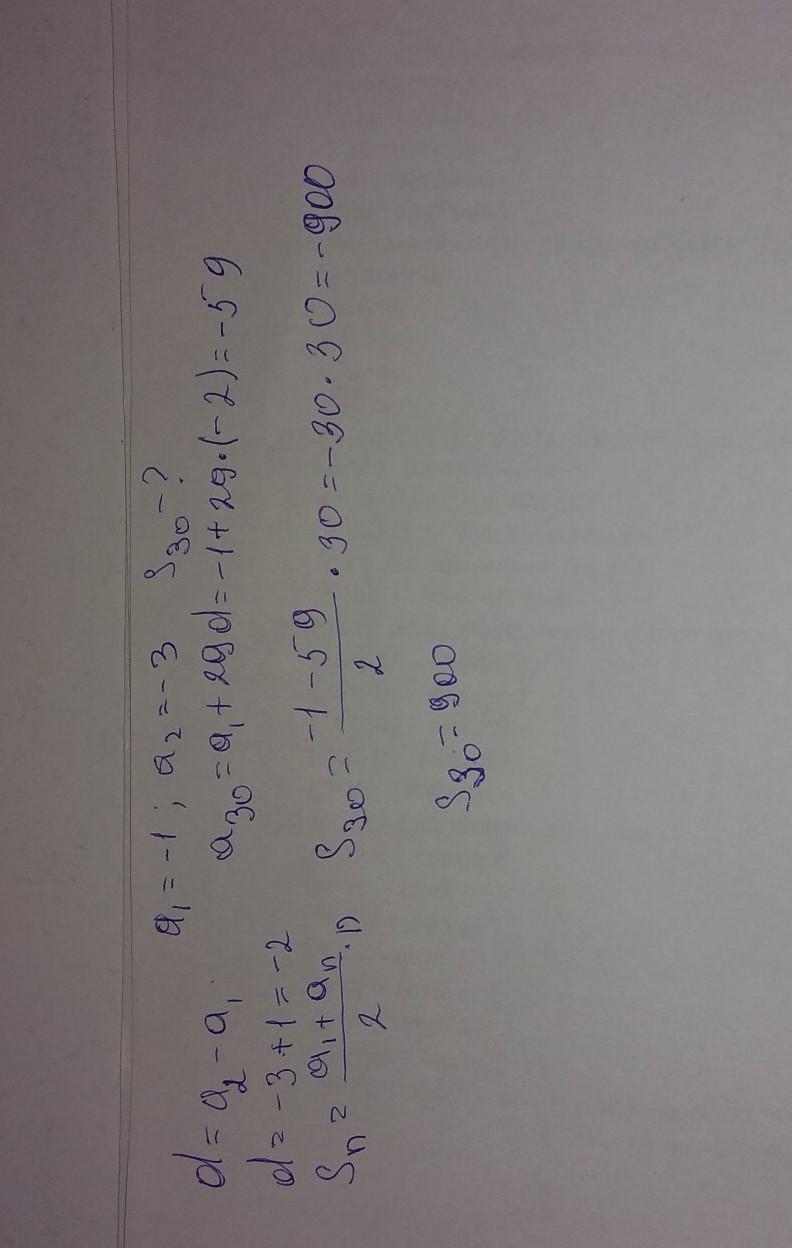 a₁ = -1 ; a₂ = -3 S₃₀ - ?
d = a₂ - a₁ a₃₀ = a₁ + 29d = -1 + 29·(-2) = -59
d = -3 + 1 = -2
Sₙ = (a₁ + aₙ)/2 · n S₃₀ = (-1 - 59)/2 · 30 = -30 · 30 = -900
S₃₀ = 900